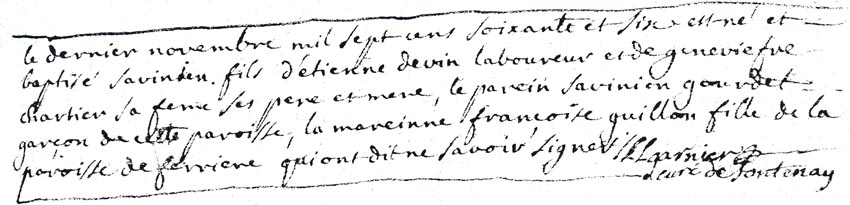 le dernier novembre mil sept cens soixante et six est né et
baptisé savinien fils d'étienne devin laboureur et de geneviefve
chartier sa feme ses pere et mere, le parein savinien gourdet
garçon de cette paroisse, la mareinne francoise guillon fille de la
paroisse de ferriere qui ont dit ne savoir signer Garnier
curé de fontenay